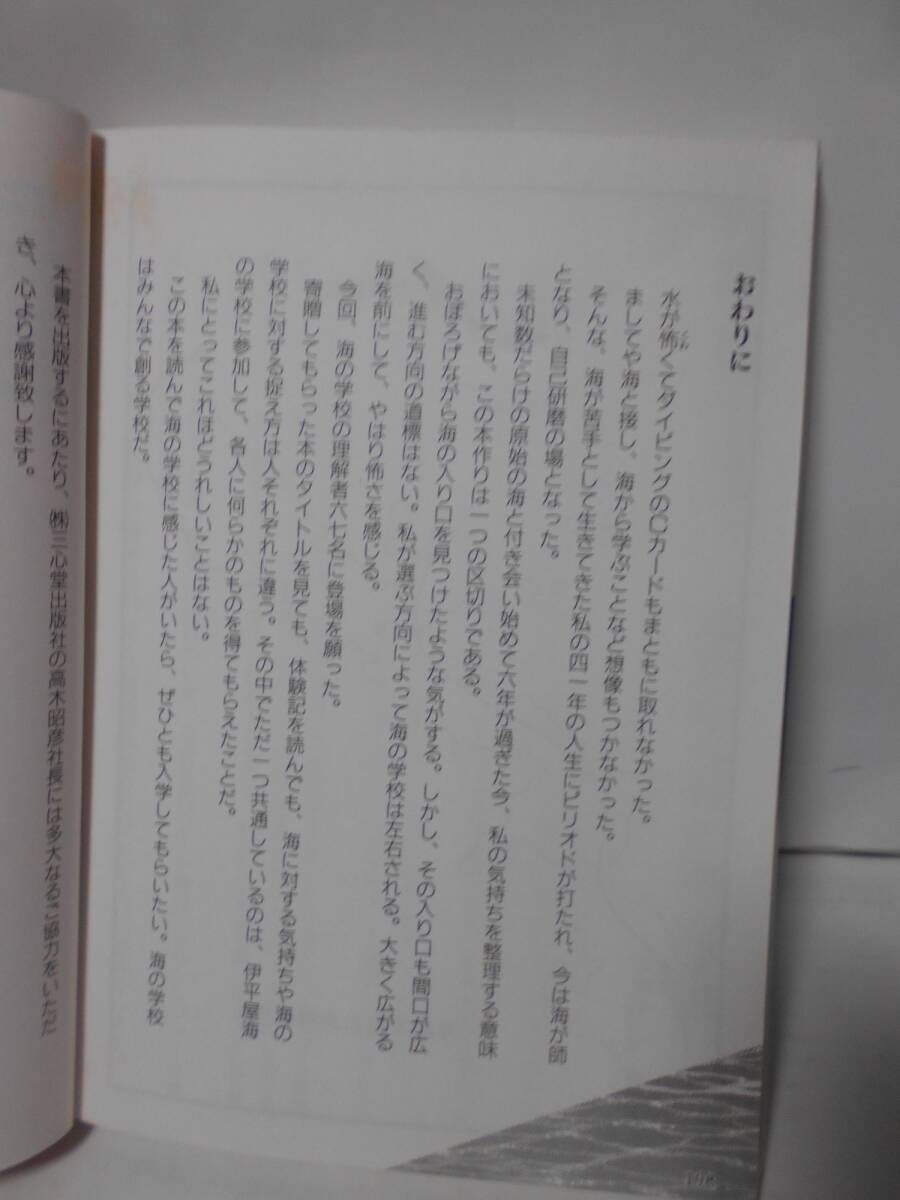 おわりに
水が怖くてダイビングのCカードもまともに取れなかった。
こわ
ましてや海と接し、海から学ぶことなど想像もつかなかった。
そんな、海が苦手として生きてきた私の四一年の人生にピリオドが打たれ、今は海が師
となり、自己研磨の場となった。
未知数だらけの原始の海と付き合い始めて六年が過ぎた今、私の気持ちを整理する意味
においても、この本作りは一つの区切りである。
おぼろげながら海の入り口を見つけたような気がする。しかし、その入り口も間口が広
く、進む方向の道標はない。私が選ぶ方向によって海の学校は左右される。大きく広がる
海を前にして、やはり怖さを感じる。
今回、海の学校の理解者六七名に登場を願った。
寄贈してもらった本のタイトルを見ても、体験記を読んでも、海に対する気持ちや海の
学校に対する捉え方は人それぞれに違う。その中でただ一つ共通しているのは、伊平屋海
の学校に参加して、各人に何らかのものを得てもらえたことだ。
私にとってこれほどうれしいことはない。
この本を読んで海の学校に感じた人がいたら、ぜひとも入学してもらいたい。海の学校
はみんなで創る学校だ。
本書を出版するにあたり、㈱三心堂出版社の高木昭彦社長には多大なるご協力をいただ
き、心より感謝致します。